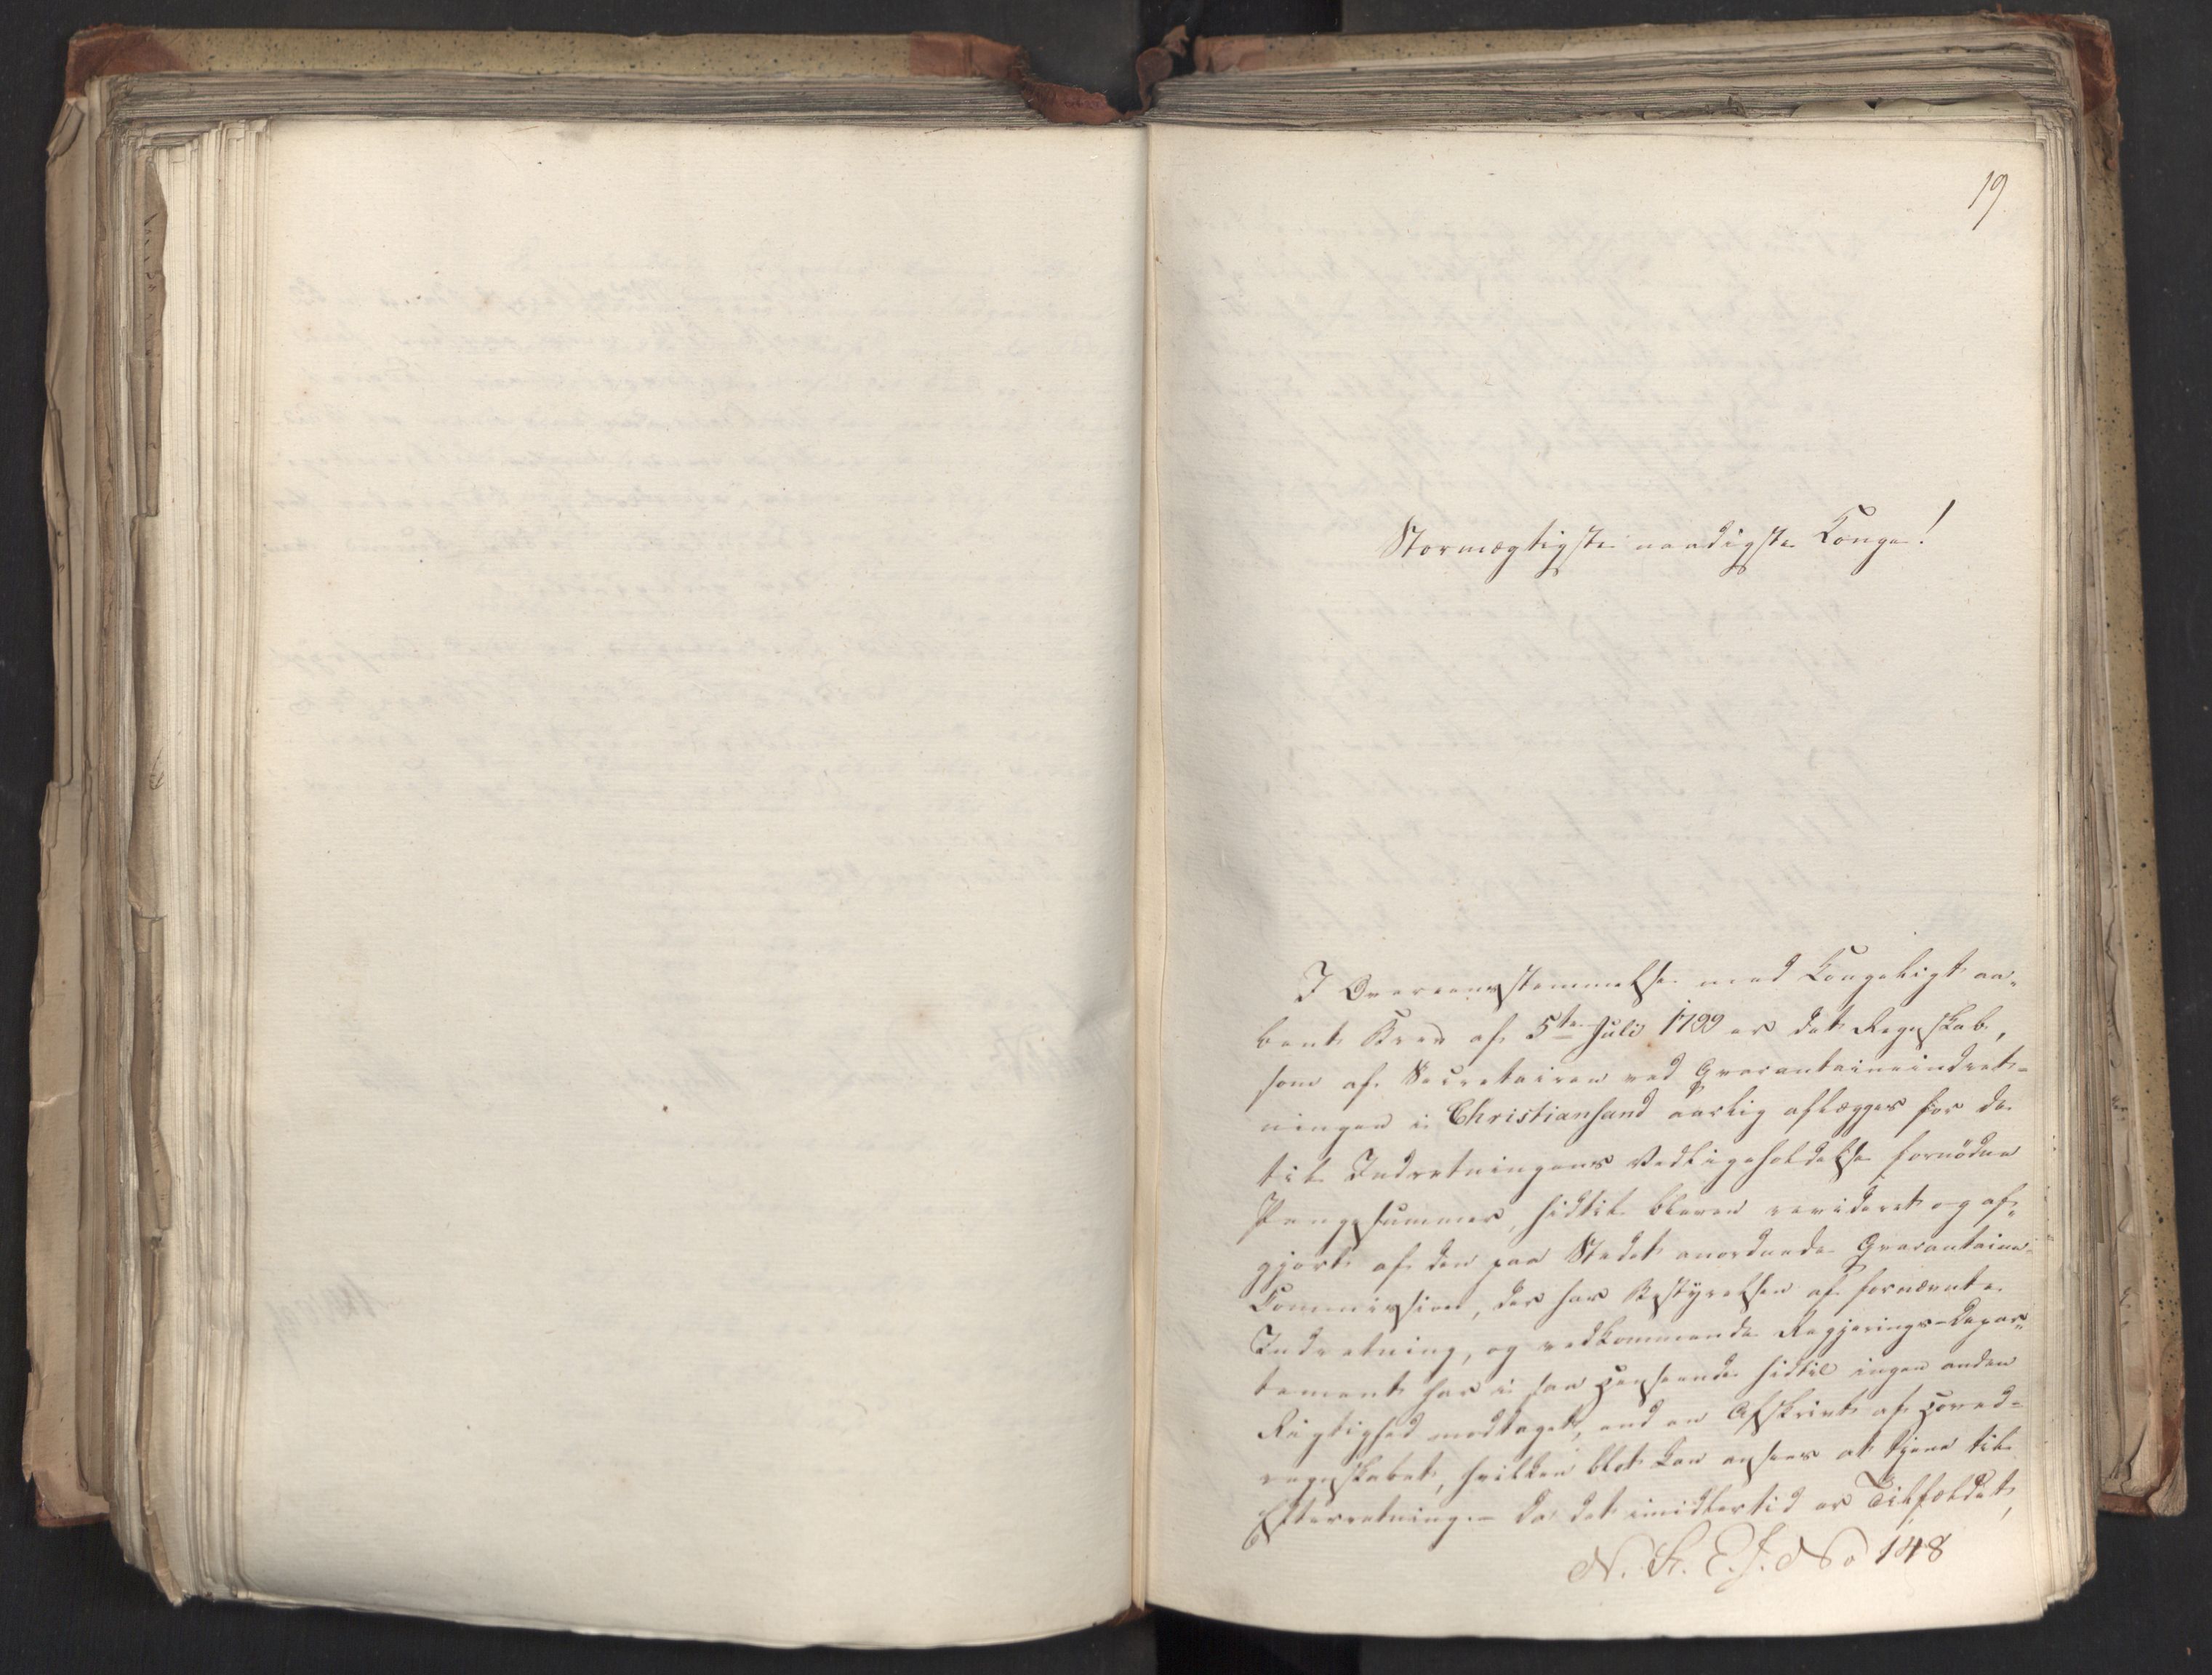 19
Stormægtigste naadigste Konge!
I Overeensstemmelse med Kongeligt aa-
bent Brev af 5te Juli 1799 er det Regnskab,
som af Secretairen ved Qvarantaineindret-
ningen i Christiansand aarlig aflægges for de
til Indretningens Vedligeholdelse fornødne
Pengesummer, hidtil bleven revideret og af-
gjort af den paa Stedet anordnede Qvarantaine-
Commission, der har Bestyrelsen af fornævnte
Indretning, og vedkommende Regjerings-Depar-
tement har i saa Henseende hidtil ingen anden
Rigtighed modtaget, end en Afskrivt af Hoved-
regnskabet, hvilken blot kan ansees at tjene til
Efterretning. – Da det imidlertid er Tilfældet,
N. R. E. J. No 148